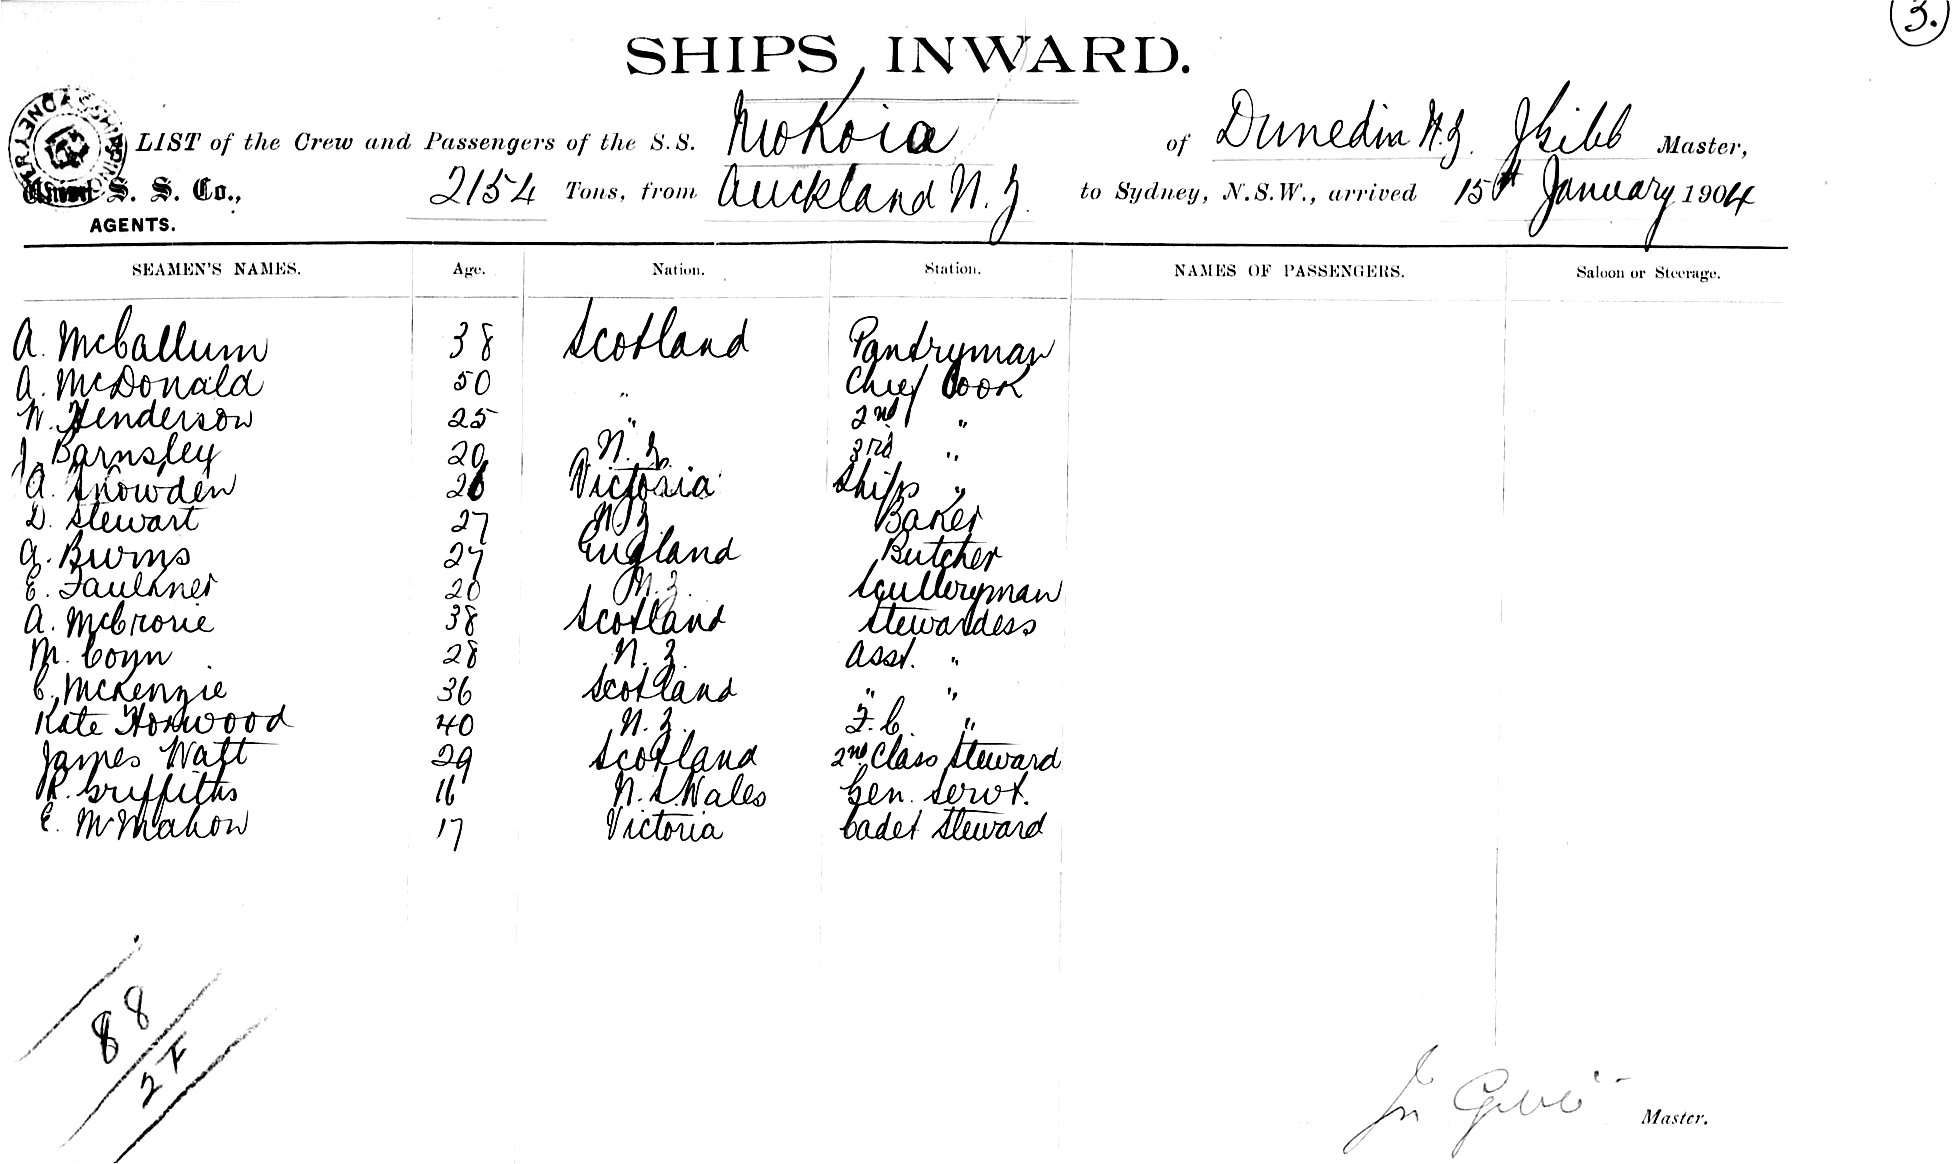 3.
SHIPS INWARD.
LIST of the Crew and Passengers of the S.S. Mokoia of Dunedin N.Z. J Gibb Master,
Union S. S. Co., 2154 Tons, from Auckland N.Z. to Sydney, N.S.W., arrived 15th January 1904
AGENTS.
SEAMEN'S NAMES. Age. Nation. Station. NAMES OF PASSENGERS. Saloon or Steerage.
A. McCallum 38 Scotland Pantryman
A. McDonald 50 " Chief Cook
W. Henderson 25 " 2nd "
J. Barnsley 20 N.Z. 3rd "
A. Snowden 26 Victoria Ships "
D. Stewart 27 N.Z. Baker
G. Burns 27 England Butcher
E. Faulkner 20 N.Z. Sculleryman
A. McCrorie 38 Scotland Stewardess
M. Coyn 28 N.Z. Asst. "
C. McKenzie 36 Scotland " "
Kate Honwood 40 N.Z. F.C. "
James Watt 29 Scotland 2nd Class Steward
R. Griffiths 16 N.S.Wales Gen. Servt.
E. McMahon 17 Victoria Cadet Steward
88
2F
Jn Gibb Master.